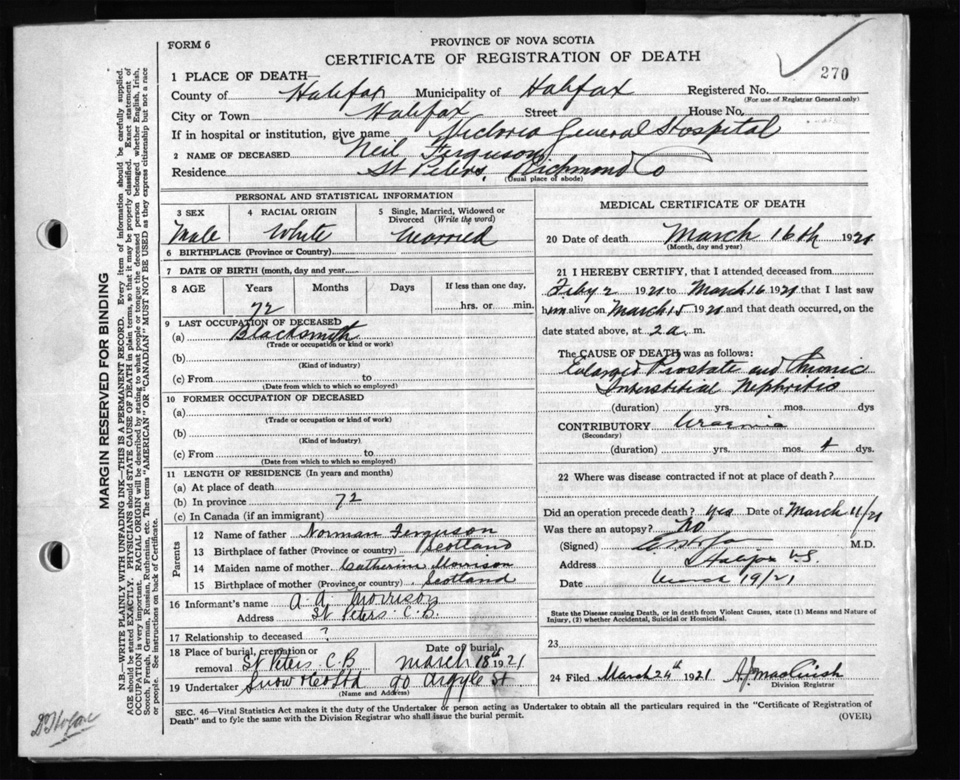 FORM 6
PROVINCE OF NOVA SCOTIA
CERTIFICATE OF REGISTRATION OF DEATH
270
1 PLACE OF DEATH—
County of Halifax Municipality of Halifax Registered No.
(For use of Registrar General only)
City or Town Halifax Street House No.
If in hospital or institution, give name Victoria General Hospital
2 NAME OF DECEASED Neil Ferguson
Residence St Peters, Richmond Co
(Usual place of abode)
PERSONAL AND STATISTICAL INFORMATION
3 SEX 4 RACIAL ORIGIN 5 Single, Married, Widowed or Divorced (Write the word)
Male White Married
6 BIRTHPLACE (Province or Country)
7 DATE OF BIRTH (month, day and year)
8 AGE Years Months Days If less than one day,
72 hrs. or min.
9 LAST OCCUPATION OF DECEASED
(a) Blacksmith
(Trade or occupation or kind or work)
(b)
(Kind of industry)
(c) From to
(Date from which to which so employed)
10 FORMER OCCUPATION OF DECEASED
(a)
(Trade or occupation or kind of work)
(b)
(Kind of industry)
(c) From to
(Date from which to which so employed)
11 LENGTH OF RESIDENCE (In years and months)
(a) At place of death
(b) In province 72
(c) In Canada (if an immigrant)
Parents
12 Name of father Norman Ferguson
13 Birthplace of father (Province or country) Scotland
14 Maiden name of mother Catherine Morrison
15 Birthplace of mother (Province or country) Scotland
16 Informant's name A. A. Morrison
Address St Peters C.B.
17 Relationship to deceased ?
18 Place of burial, cremation or removal St Peters C.B Date of burial March 18th 1921
19 Undertaker Snow & Co Ltd 90 Argyle St
(Name and Address)
MEDICAL CERTIFICATE OF DEATH
20 Date of death March 16th 1921
(Month, day and year)
21 I HEREBY CERTIFY, that I attended deceased from
Feby 2 1921 to March 16 1921 that I last saw
him alive on March 15 1921 and that death occurred, on the
date stated above, at 2 a. m.
The CAUSE OF DEATH was as follows:
Enlarged Prostate and Chronic
Interstitial Nephritis
(duration) yrs. mos. dys
CONTRIBUTORY Uraemia
(Secondary)
(duration) yrs. mos. dys.
22 Where was disease contracted if not at place of death?
Did an operation precede death? Yes Date of March 11/21
Was there an autopsy? No
(Signed) M.D.
Address Halifax N.S.
Date March 19/21
State the Disease causing Death, or in death from Violent Causes, state (1) Means and Nature of
Injury, (2) whether Accidental, Suicidal or Homicidal.
23
24 Filed March 24th 1921
Division Registrar
SEC. 46—Vital Statistics Act makes it the duty of the Undertaker or person acting as Undertaker to obtain all the particulars required in the "Certificate of Registration of
Death" and to fyle the same with the Division Registrar who shall issue the burial permit.
(OVER)
MARGIN RESERVED FOR BINDING
N.B.—WRITE PLAINLY WITH UNFADING INK—THIS IS A PERMANENT RECORD. Every item of information should be carefully supplied.
AGE should be stated EXACTLY. PHYSICIANS should STATE CAUSE OF DEATH in plain terms, so that it may be properly classified. Exact statement of
OCCUPATION is very important. RACIAL ORIGIN will be described by stating to what people or tongue the deceased person belonged whether English, Irish,
Scotch, French, German, Russian, Ruthenian, etc. The terms "AMERICAN" OR "CANADIAN" MUST NOT BE USED as they express citizenship but not a race
or people. See instructions on back of Certificate.